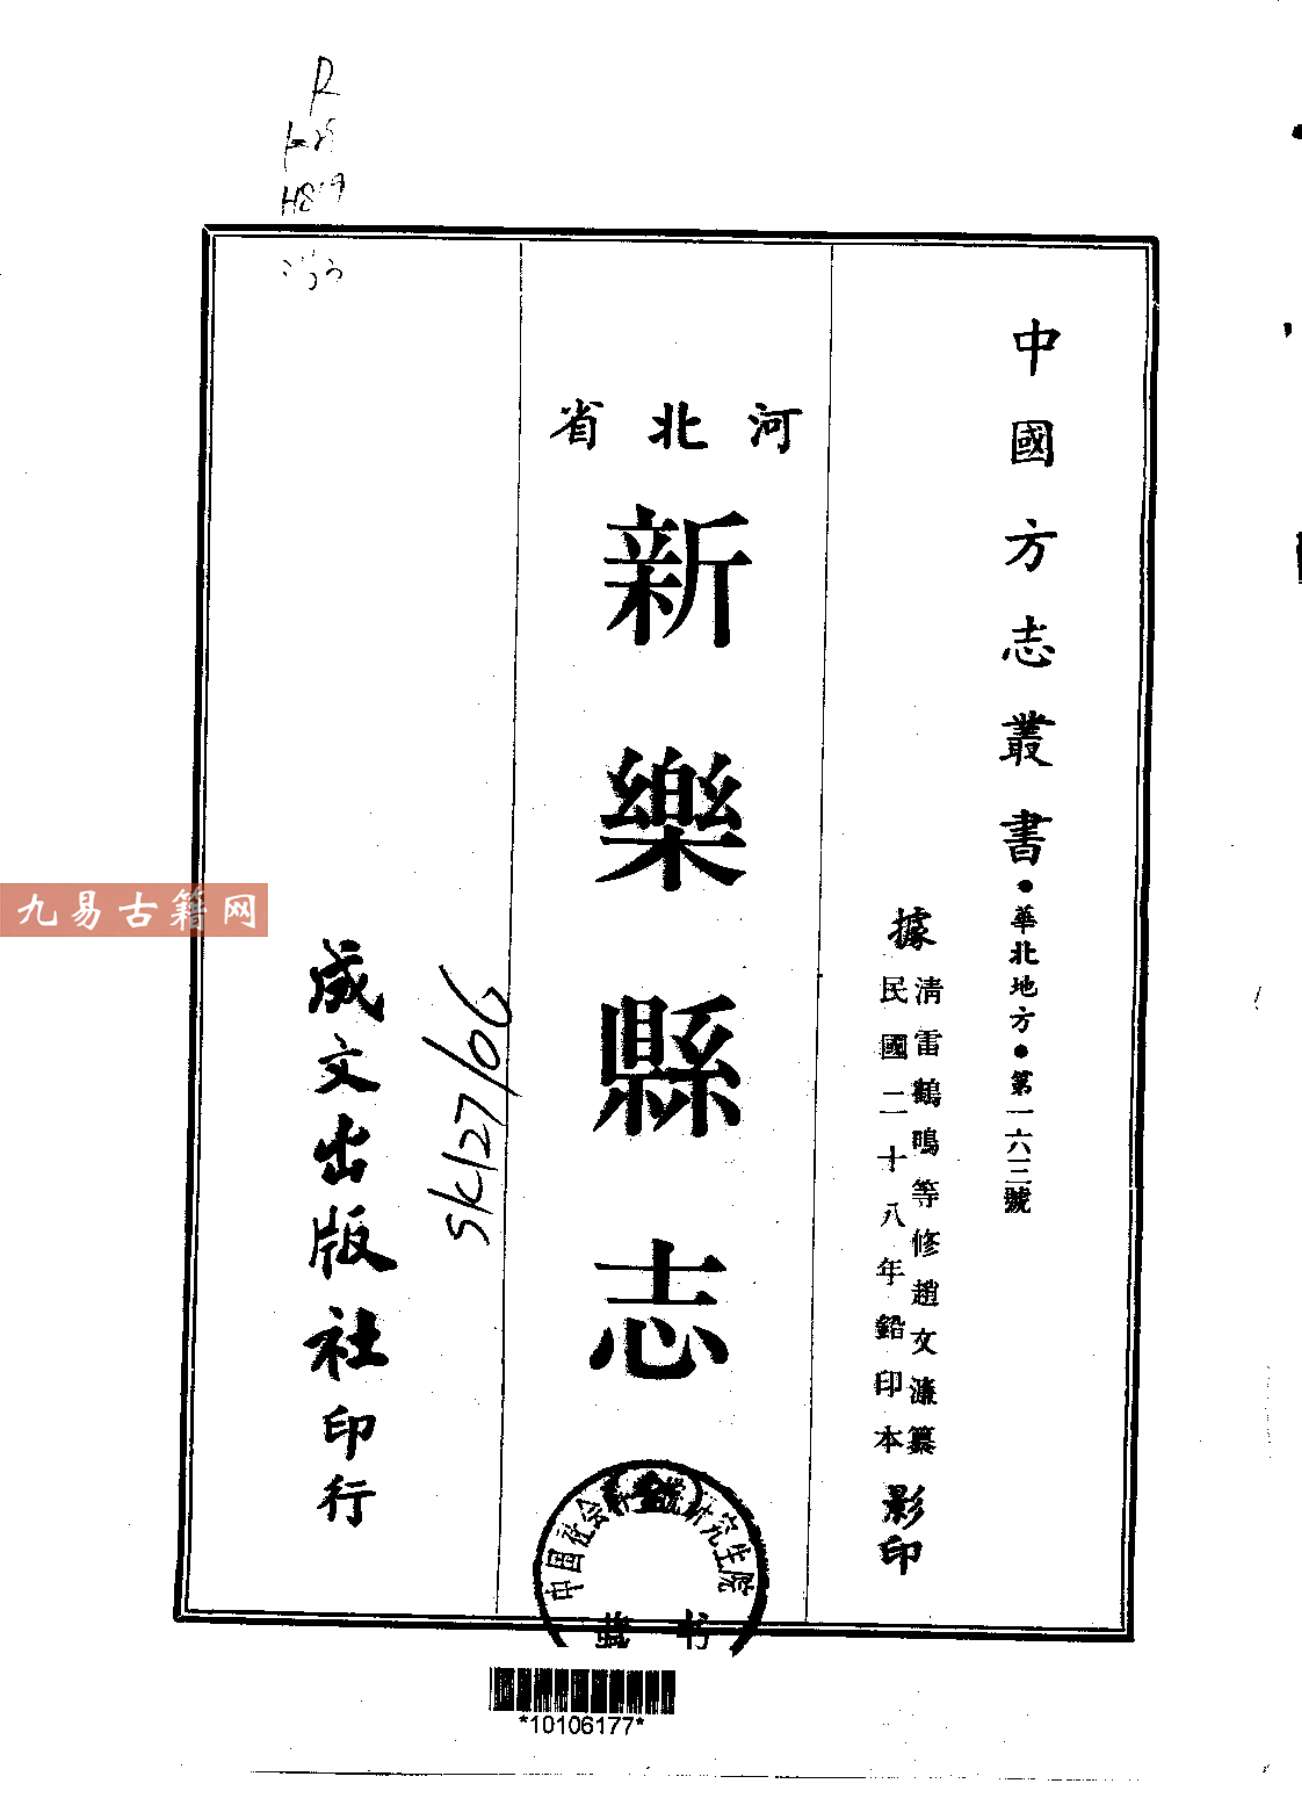 中國方志叢書・華北地方・第一六三號
據
清雷鶴鳴等修趙文濂纂
民國二十八年鉛印本
影印
河北省
新樂縣志
(全)
成文出版社印行
SK127/06
中国社会科学院研究生院
藏书
*10106177*
九易古籍网